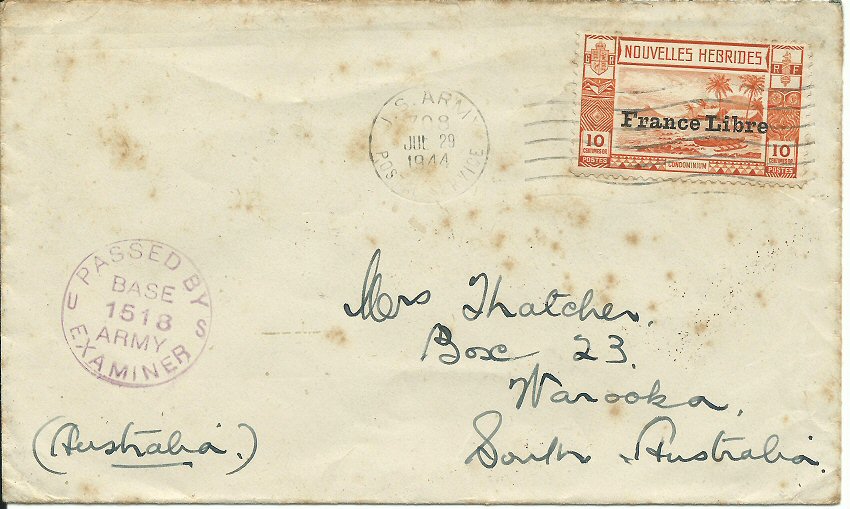 NOUVELLES HEBRIDES
G R
R F
France Libre
10
CENTIMES OR
POSTES
CONDOMINIUM
10
CENTIMES OR
POSTES
U.S. ARMY
708
JUL 29
1944
POSTAL SERVICE
PASSED BY
BASE
1518
ARMY
EXAMINER
U S
Mrs Thatcher.
Box 23.
Warooka,
South Australia.
(Australia.)